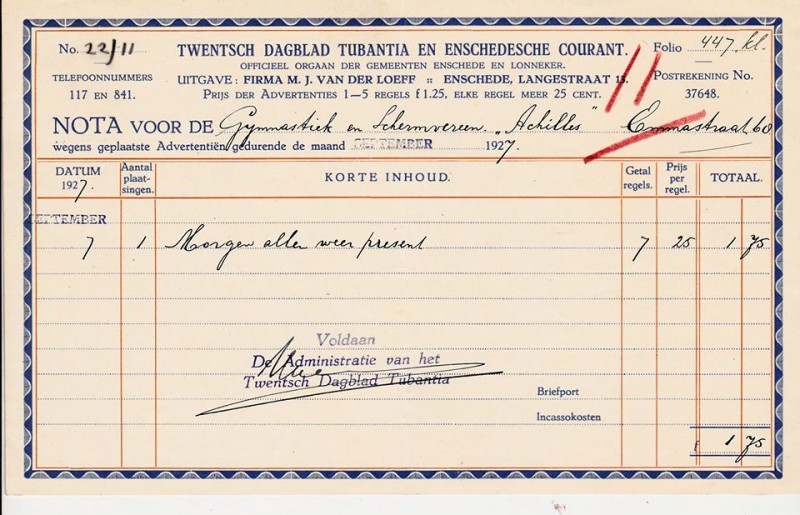 No. 22/11
TWENTSCH DAGBLAD TUBANTIA EN ENSCHEDESCHE COURANT.
Folio 447. kl.
OFFICIEEL ORGAAN DER GEMEENTEN ENSCHEDE EN LONNEKER.
TELEFOONNUMMERS
UITGAVE: FIRMA M. J. VAN DER LOEFF :: ENSCHEDE, LANGESTRAAT 13.
POSTREKENING No.
117 EN 841.
PRIJS DER ADVERTENTIES 1—5 REGELS f 1.25, ELKE REGEL MEER 25 CENT.
37648.
11
NOTA VOOR DE Gymnastiek en Schermvereen. „Achilles" Emmastraat 60
wegens geplaatste Advertentiën gedurende de maand SEPTEMBER 1927.
DATUM 1927.
Aantal plaat-singen.
KORTE INHOUD.
Getal regels.
Prijs per regel.
TOTAAL.
SEPTEMBER
7 1 Morgen allen weer present 7 25 1 75
Voldaan
De Administratie van het
Twentsch Dagblad Tubantia
Briefport
Incassokosten
f 1 75